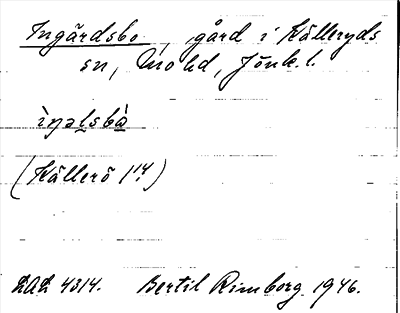 Ingärdsbo, gård i Kålleryds
sn, Mo hd, Jönk. l.
ìŋəlsbò
(Källerö 1¹⁴)
LAL 4314. Bertil Rimborg 1946.